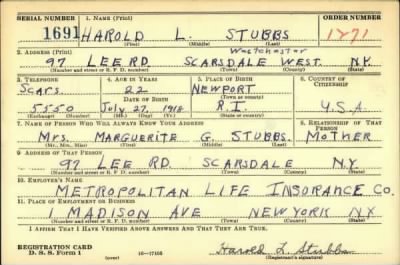 SERIAL NUMBER 1. NAME (Print) ORDER NUMBER
1691 HAROLD L. STUBBS 1771
(First) (Middle) (Last)
2. ADDRESS (Print) Westchester
97 LEE RD. SCARSDALE WEST. N.Y.
(Number and street or R. F. D. number) (Town) (County) (State)
3. TELEPHONE 4. AGE IN YEARS 5. PLACE OF BIRTH 6. COUNTRY OF CITIZENSHIP
Scars. 22 NEWPORT
DATE OF BIRTH (Town or county)
5550 July 27, 1918 R.I. U.S.A.
(Exchange) (Number) (Mo.) (Day) (Yr.) (State or country)
7. NAME OF PERSON WHO WILL ALWAYS KNOW YOUR ADDRESS 8. RELATIONSHIP OF THAT PERSON
Mrs. MARGUERITE G. STUBBS. MOTHER
(Mr., Mrs., Miss) (First) (Middle) (Last)
9. ADDRESS OF THAT PERSON
97 LEE RD. SCARSDALE N.Y.
(Number and street or R. F. D. number) (Town) (County) (State)
10. EMPLOYER'S NAME
METROPOLITAN LIFE INSURANCE CO.
11. PLACE OF EMPLOYMENT OR BUSINESS
1 MADISON AVE NEW YORK NY
(Number and street or R. F. D. number) (Town) (County) (State)
I AFFIRM THAT I HAVE VERIFIED ABOVE ANSWERS AND THAT THEY ARE TRUE.
REGISTRATION CARD
D. S. S. Form 1 16—17105 Harold L. Stubbs
(Registrant's signature)